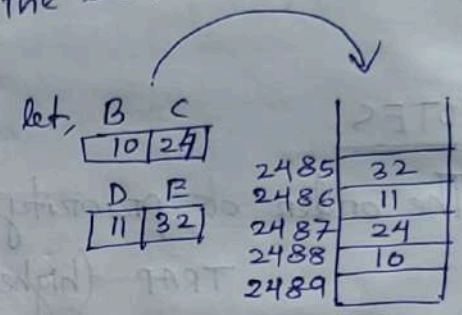 the
let, B C
10 24
D E
11 32
2485 32
2486 11
2487 24
2488 10
2489